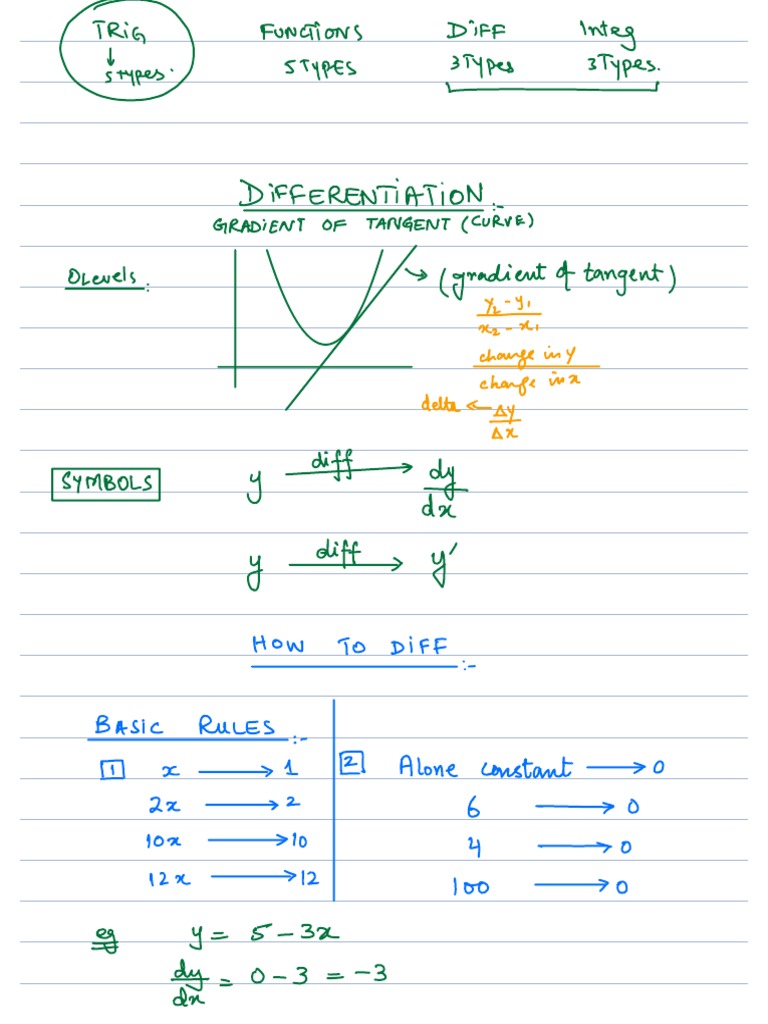 TRIG FUNCTIONS DIFF Integ
↓ 5 types. 5 TYPES 3 Types 3 Types.
DIFFERENTIATION:-
GRADIENT OF TANGENT (CURVE)
O Levels: → (gradient of tangent)
y₂ - y₁
x₂ - x₁
change in y
change in x
delta ← Δy
Δx
SYMBOLS y diff→ dy/dx
y diff→ y′
HOW TO DIFF:-
BASIC RULES:-
1 x → 1
2x → 2
10x → 10
12x → 12
2 Alone constant → 0
6 → 0
4 → 0
100 → 0
eg y = 5 - 3x
dy/dx = 0 - 3 = -3